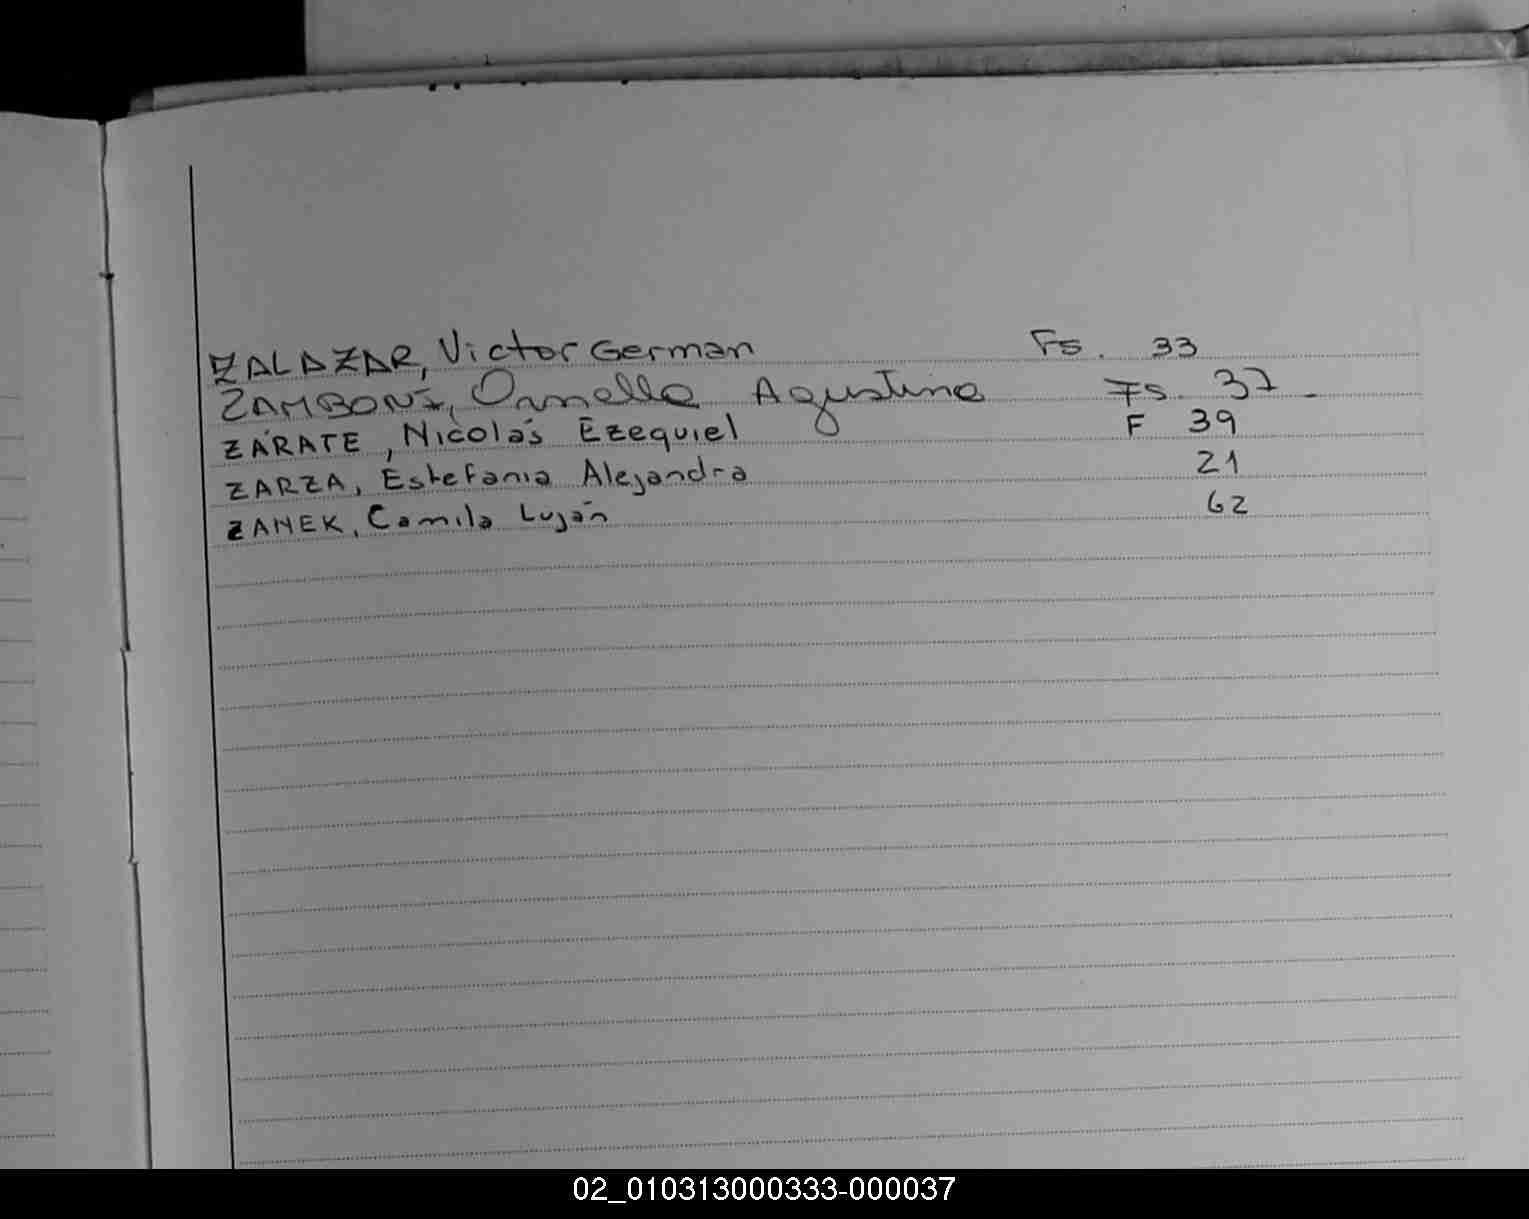 ZALAZAR, Victor German Fs. 33
ZAMBONI, Ornella Agustina Fs. 37
ZÁRATE, Nicolás Ezequiel F 39
ZARZA, Estefania Alejandra 21
ZANEK, Camila Luján 62
02_010313000333-000037